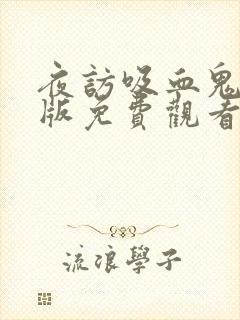 夜訪吸血鬼
版免費觀看
流浪學子